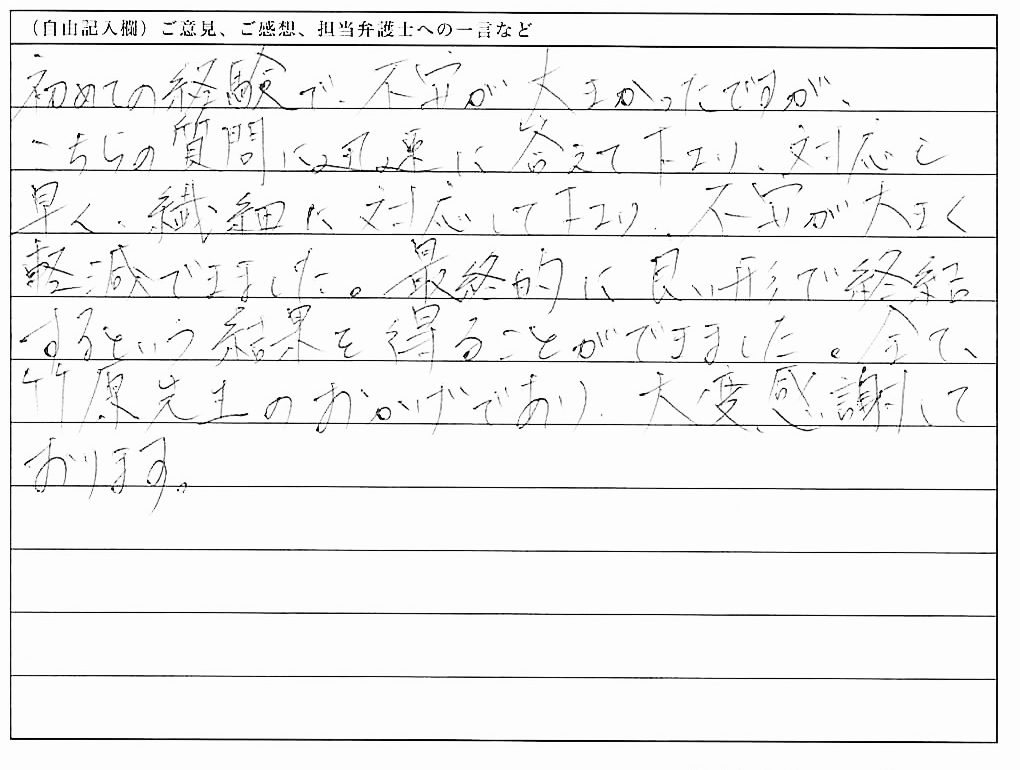 （自由記入欄）ご意見、ご感想、担当弁護士への一言など
初めての経験で、不安が大きかったですが、
こちらの質問に迅速に答えて下さり、対応も
早く、繊細に対応して下さり、不安が大きく
軽減できました。最終的に良い形で終結
するという結果を得ることができました。全て、
竹原先生のおかげであり、大変感謝して
おります。